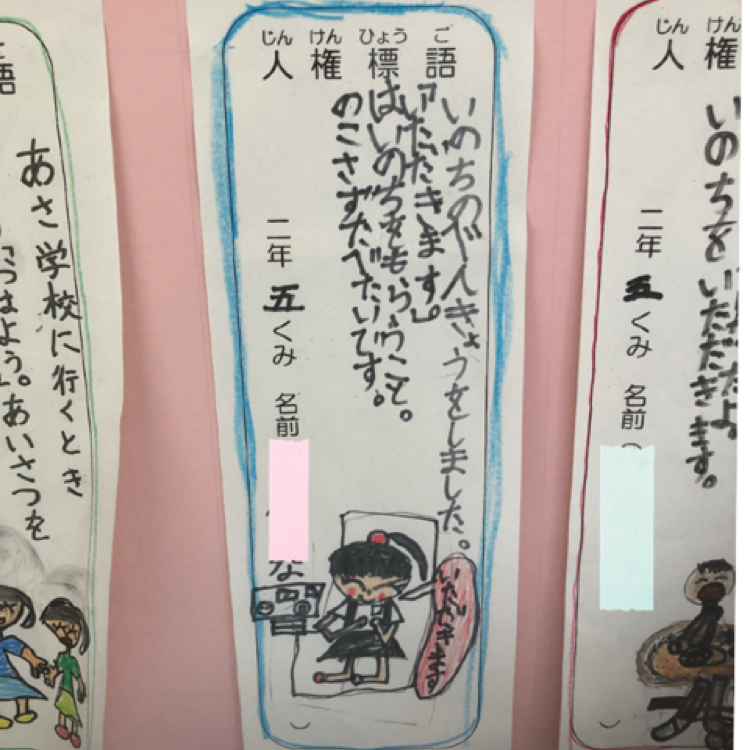 じん けん
人権
いのちをいただだよ
いただきます。
二年 五くみ 名前
じん けん ひょう ご
人権標語
いのちのべんきょうをしました。
「いただきます。」
はいのちをもらうこと。
のこさずたべたいです。
二年 五くみ 名前
な
いただきます
語
あさ学校に行くとき
おはよう。」あいさつを